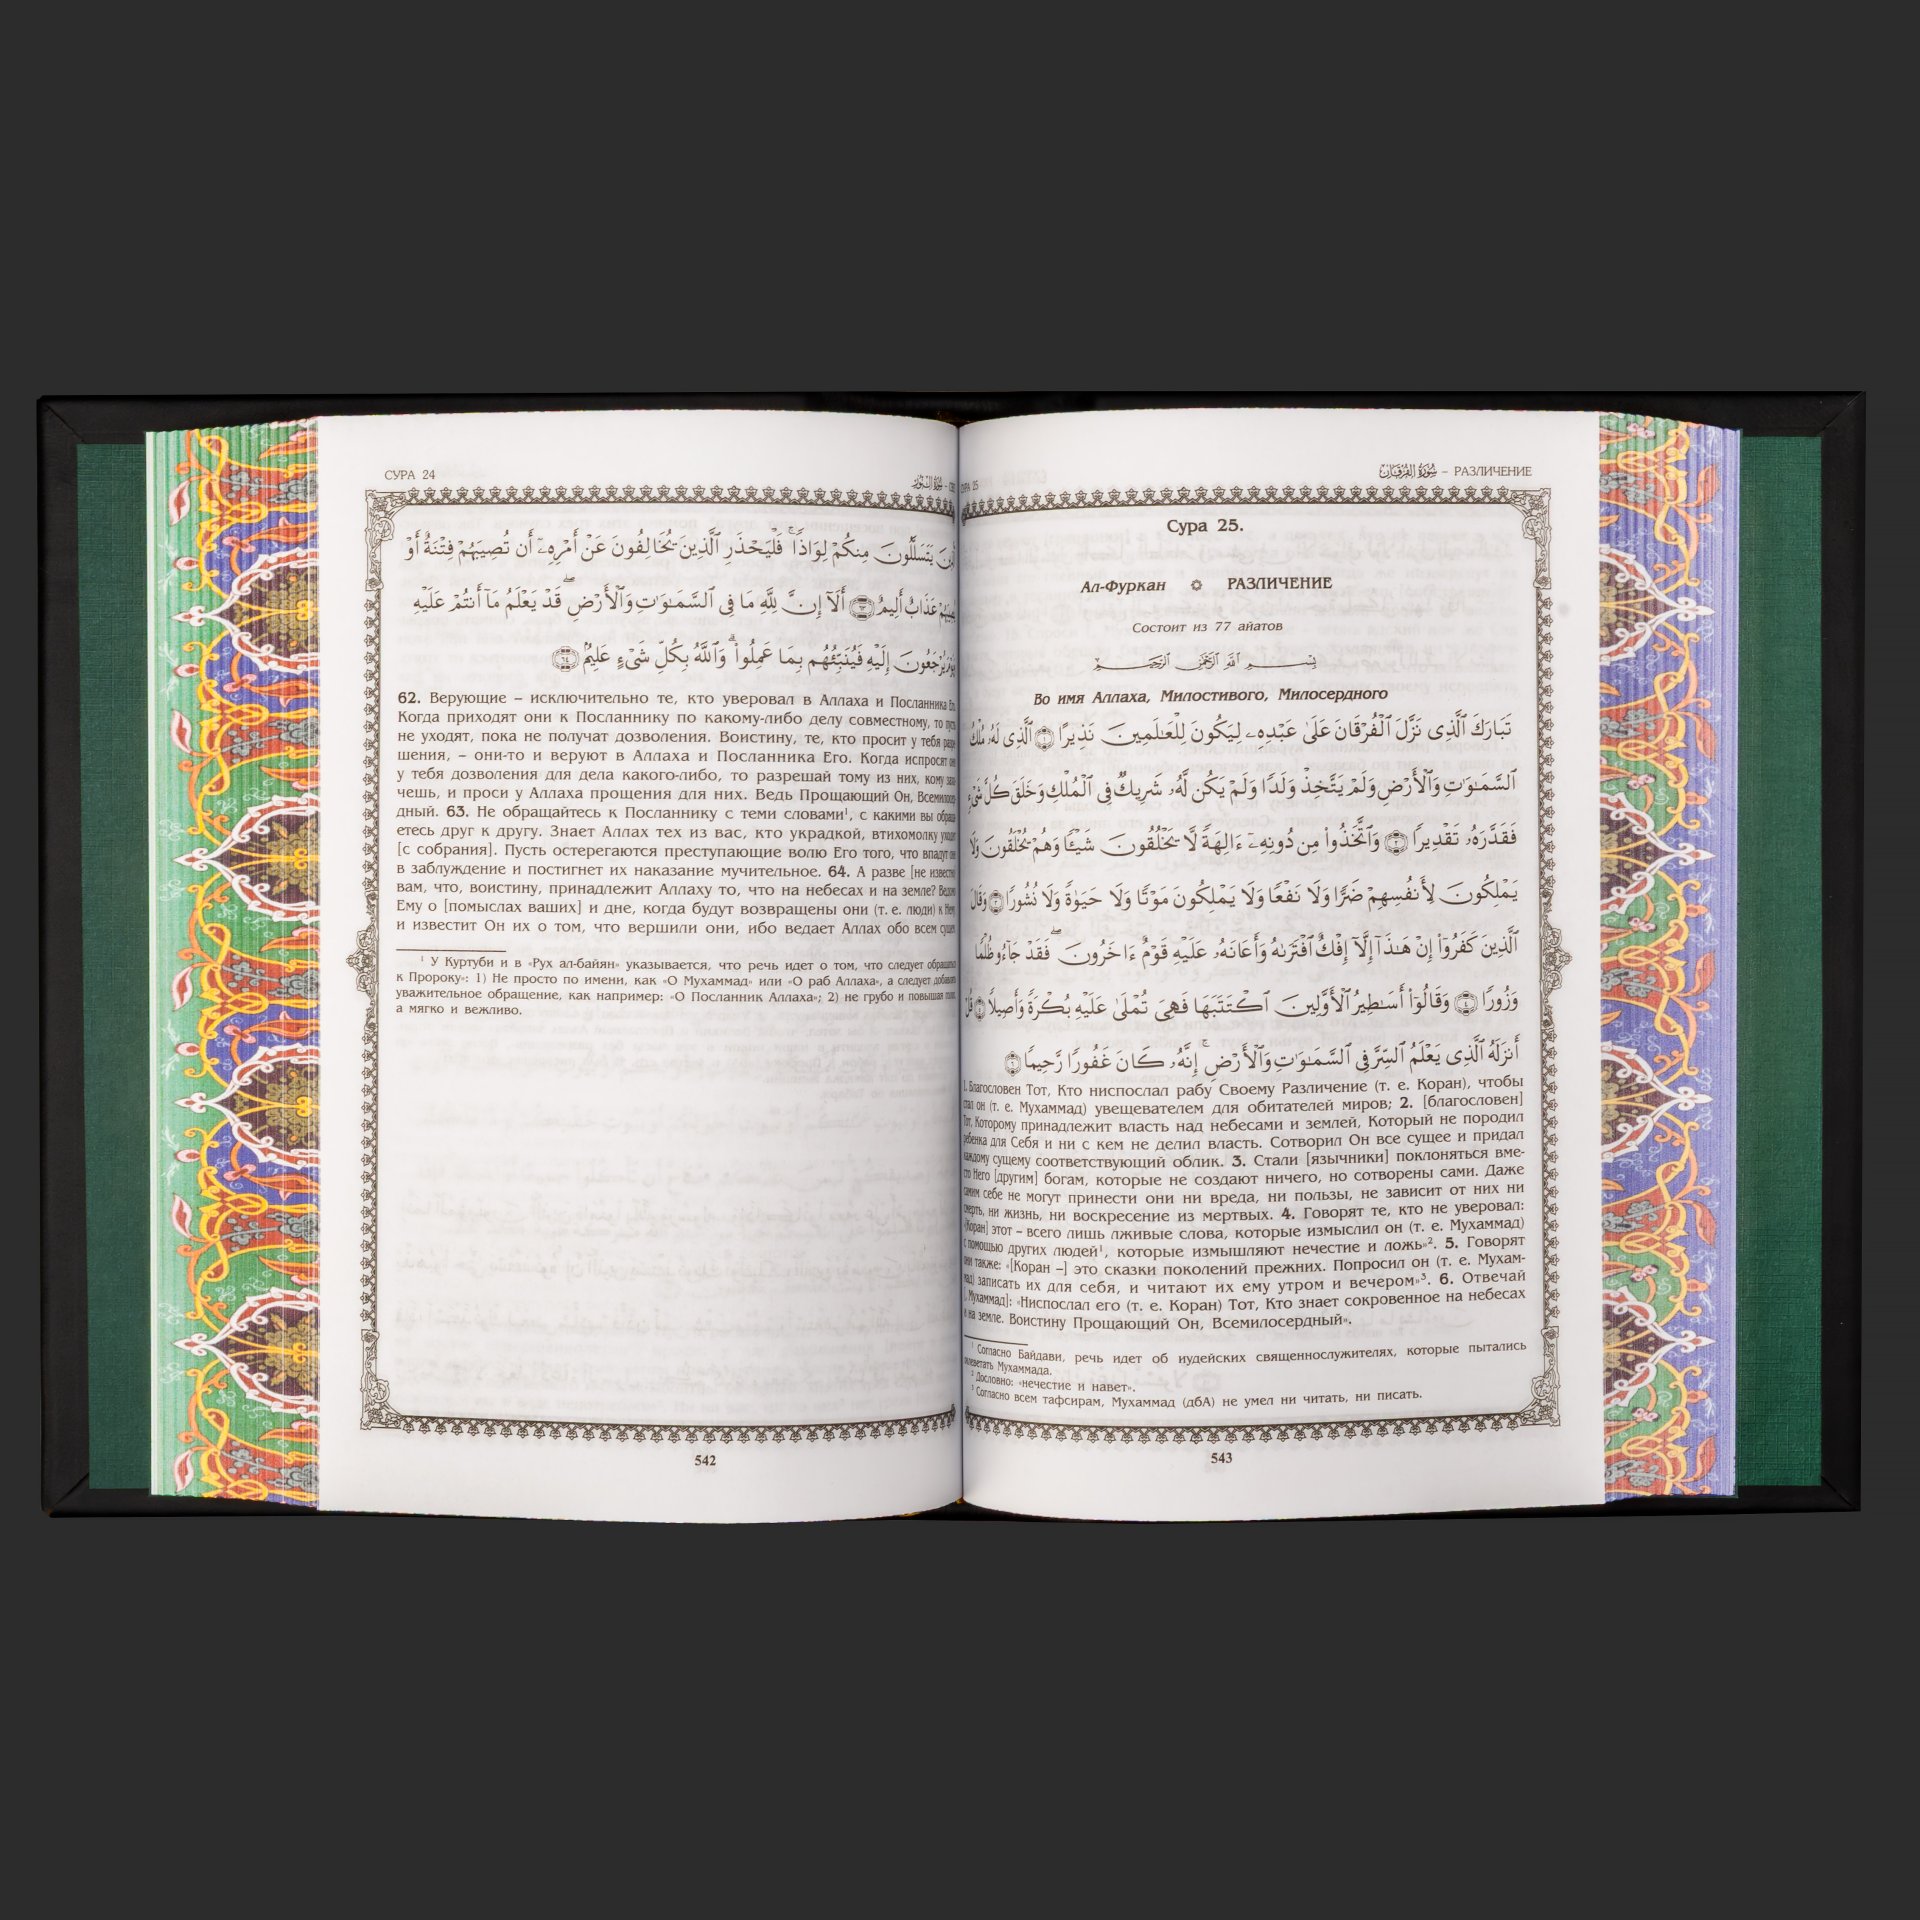 СУРА 24
سُورَةُ النُّورِ –
يَتَسَلَّلُونَ مِنكُمْ لِوَاذًا ۚ فَلْيَحْذَرِ ٱلَّذِينَ يُخَالِفُونَ عَنْ أَمْرِهِۦٓ أَن تُصِيبَهُمْ فِتْنَةٌ أَوْ
عَذَابٌ أَلِيمٌ ٦٣ أَلَآ إِنَّ لِلَّهِ مَا فِى ٱلسَّمَـٰوَٰتِ وَٱلْأَرْضِ ۖ قَدْ يَعْلَمُ مَآ أَنتُمْ عَلَيْهِ
يُرْجَعُونَ إِلَيْهِ فَيُنَبِّئُهُم بِمَا عَمِلُوا۟ ۗ وَٱللَّهُ بِكُلِّ شَىْءٍ عَلِيمٌۢ ٦٤
62. Верующие – исключительно те, кто уверовал в Аллаха и Посланника Его.
Когда приходят они к Посланнику по какому-либо делу совместному, то пусть
не уходят, пока не получат дозволения. Воистину, те, кто просит у тебя разре-
шения, – они-то и веруют в Аллаха и Посланника Его. Когда испросят они
у тебя дозволения для дела какого-либо, то разрешай тому из них, кому
чешь, и проси у Аллаха прощения для них. Ведь Прощающий Он, Всемилосер-
дный. 63. Не обращайтесь к Посланнику с теми словами¹, с какими вы обраща-
етесь друг к другу. Знает Аллах тех из вас, кто украдкой, втихомолку уходит
[с собрания]. Пусть остерегаются преступающие волю Его того, что впадут они
в заблуждение и постигнет их наказание мучительное. 64. А разве [не известно]
вам, что, воистину, принадлежит Аллаху то, что на небесах и на земле? Ведомо
Ему о [помыслах ваших] и дне, когда будут возвращены они (т. е. люди) к Нему,
и известит Он их о том, что вершили они, ибо ведает Аллах обо всем сущем.
¹ У Куртуби и в «Рух ал-байян» указывается, что речь идет о том, что следует обращаться
к Пророку»: 1) Не просто по имени, как «О Мухаммад» или «О раб Аллаха», а следует добавлять
уважительное обращение, как например: «О Посланник Аллаха»; 2) не грубо и повышая голос,
а мягко и вежливо.
542
СУРА 25
سُورَةُ الْفُرْقَانِ – РАЗЛИЧЕНИЕ
Сура 25.
Ал-Фуркан ۞ РАЗЛИЧЕНИЕ
Состоит из 77 айатов
بِسْمِ ٱللَّهِ ٱلرَّحْمَـٰنِ ٱلرَّحِيمِ
Во имя Аллаха, Милостивого, Милосердного
تَبَارَكَ ٱلَّذِى نَزَّلَ ٱلْفُرْقَانَ عَلَىٰ عَبْدِهِۦ لِيَكُونَ لِلْعَـٰلَمِينَ نَذِيرًا ١ ٱلَّذِى لَهُۥ مُلْكُ
ٱلسَّمَـٰوَٰتِ وَٱلْأَرْضِ وَلَمْ يَتَّخِذْ وَلَدًا وَلَمْ يَكُن لَّهُۥ شَرِيكٌ فِى ٱلْمُلْكِ وَخَلَقَ كُلَّ شَىْءٍ
فَقَدَّرَهُۥ تَقْدِيرًا ٢ وَٱتَّخَذُوا۟ مِن دُونِهِۦٓ ءَالِهَةً لَّا يَخْلُقُونَ شَيْـًٔا وَهُمْ يُخْلَقُونَ وَلَا
يَمْلِكُونَ لِأَنفُسِهِمْ ضَرًّا وَلَا نَفْعًا وَلَا يَمْلِكُونَ مَوْتًا وَلَا حَيَوٰةً وَلَا نُشُورًا ٣ وَقَالَ
ٱلَّذِينَ كَفَرُوٓا۟ إِنْ هَـٰذَآ إِلَّآ إِفْكٌ ٱفْتَرَىٰهُ وَأَعَانَهُۥ عَلَيْهِ قَوْمٌ ءَاخَرُونَ ۖ فَقَدْ جَآءُو ظُلْمًا
وَزُورًا ٤ وَقَالُوٓا۟ أَسَـٰطِيرُ ٱلْأَوَّلِينَ ٱكْتَتَبَهَا فَهِىَ تُمْلَىٰ عَلَيْهِ بُكْرَةً وَأَصِيلًا ٥ قُلْ
أَنزَلَهُ ٱلَّذِى يَعْلَمُ ٱلسِّرَّ فِى ٱلسَّمَـٰوَٰتِ وَٱلْأَرْضِ ۚ إِنَّهُۥ كَانَ غَفُورًا رَّحِيمًا ٦
1. Благословен Тот, Кто ниспослал рабу Своему Различение (т. е. Коран), чтобы
стал он (т. е. Мухаммад) увещевателем для обитателей миров; 2. [благословен]
Тот, Которому принадлежит власть над небесами и землей, Который не породил
ребенка для Себя и ни с кем не делил власть. Сотворил Он все сущее и придал
каждому сущему соответствующий облик. 3. Стали [язычники] поклоняться вме-
сто Него [другим] богам, которые не создают ничего, но сотворены сами. Даже
самим себе не могут принести они ни вреда, ни пользы, не зависит от них ни
смерть, ни жизнь, ни воскресение из мертвых. 4. Говорят те, кто не уверовал:
«[Коран] этот – всего лишь лживые слова, которые измыслил он (т. е. Мухаммад)
с помощью других людей¹, которые измышляют нечестие и ложь»². 5. Говорят
они также: «[Коран –] это сказки поколений прежних. Попросил он (т. е. Мухам-
мад) записать их для себя, и читают их ему утром и вечером»³. 6. Отвечай
[, Мухаммад]: «Ниспослал его (т. е. Коран) Тот, Кто знает сокровенное на небесах
и на земле. Воистину Прощающий Он, Всемилосердный».
¹ Согласно Байдави, речь идет об иудейских священнослужителях, которые пытались
оклеветать Мухаммада.
² Дословно: «нечестие и навет».
³ Согласно всем тафсирам, Мухаммад (дбА) не умел ни читать, ни писать.
543